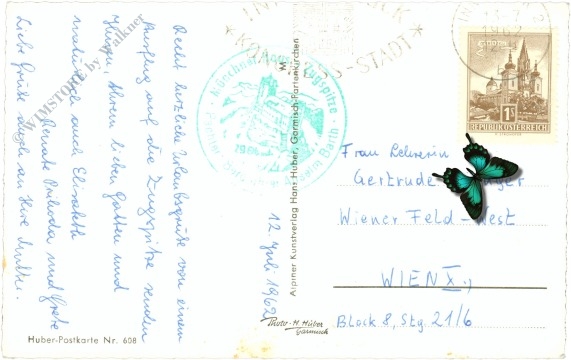 Recht herzliche Urlaubsgrüße von einem
Ausflug auf die Zugspitze senden
Ihnen, Ihrem lieben Gatten und
natürlich auch Elisabeth
Renate und Grete
Liebe Grüße auch an Ihre Mutter.
12. Juli 1962
Huber-Postkarte Nr. 608
Photo-H. Huber
Garmisch
Alpiner Kunstverlag Hans Huber, Garmisch-Partenkirchen
Münchner Haus Zugspitze
KONGRESS-STADT
1962
S 1
REPUBLIK ÖSTERREICH
Frau Lehrerin
Gertrude
Wiener Feld-West
WIEN X.,
Block 8, Stg. 21/6
WIMSTORE by Walkner